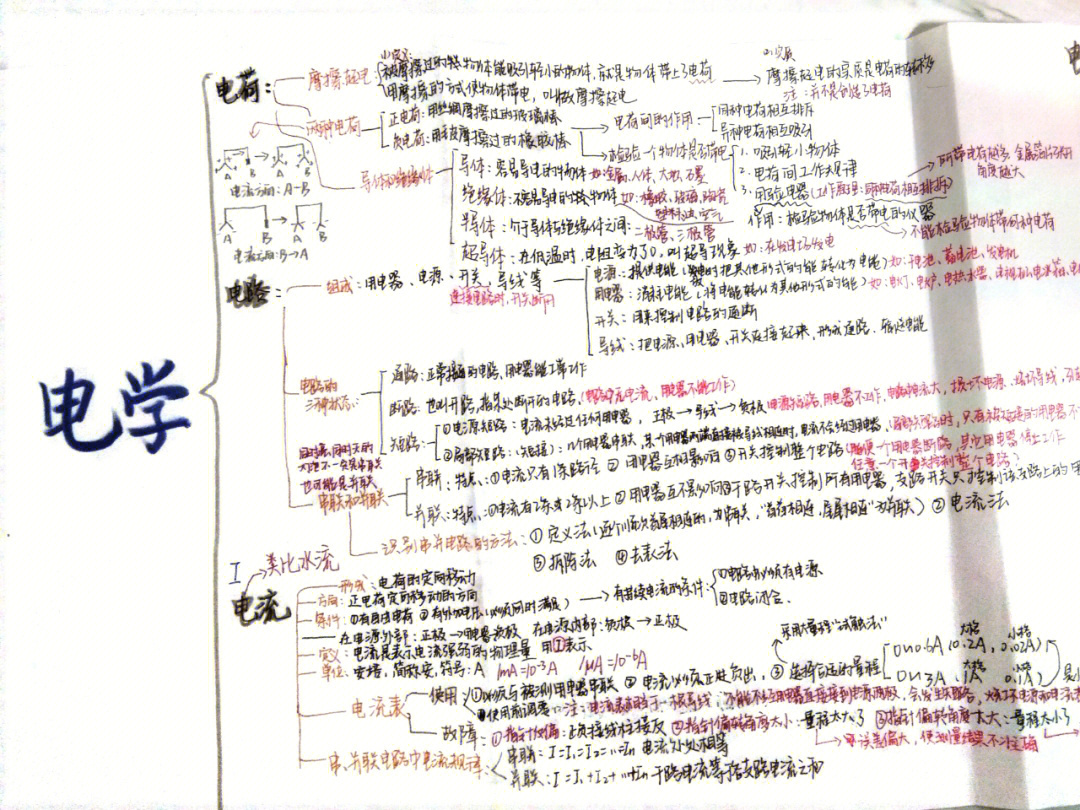 电学
电荷：
摩擦起电：
(1)定义：
被摩擦过的物体能吸引轻小的物体，就是物体带上了电荷
用摩擦的方式使物体带电，叫做摩擦起电
(2)实质
摩擦起电的实质是电荷的转移
注：并不是创造了电荷
两种电荷
正电荷：用丝绸摩擦过的玻璃棒
负电荷：用毛皮摩擦过的橡胶棒
电荷间的作用
同种电荷相互排斥
异种电荷相互吸引
检验一个物体是否带电
1. 吸引轻小物体
2. 电荷间工作规律
3. 用验电器(工作原理：同种电荷相互排斥)
作用：检验物体是否带电的仪器
所带电荷越多，金属箔张开
角度越大
不能检验物体带何种电荷
A B A B
电流方向：A→B
A B A B
电流方向：B→A
导体和绝缘体
导体：容易导电的物体 如：金属、人体、大地、石墨
绝缘体：不容易导电的物体 如：橡胶、玻璃、陶瓷
塑料、油、空气
半导体：介于导体与绝缘体之间：二极管、三极管
超导体：在低温时，电阻变为了0，叫超导现象 如：在发电场发电
电路：
组成：用电器、电源、开关、导线等
连接电路时，开关断开
电源：提供电能(发电时把其他形式的能转化为电能) 如：干电池、蓄电池、发电机
用电器：消耗电能(将电能转化为其他形式的能) 如：电灯、电炉、电热水器
开关：用来控制电路的通断
导线：把电源、用电器、开关连接起来，形成通路，输送电能
电路的
三种状态：
通路：正常接通的电路，用电器能工常工作
断路：也叫开路，指某处断开的电路(电路中无电流，用电器不能工作)
短路：
①电源短路：电流未经过任何用电器，正极→导线→负极
电源短路，用电器不工作，电路电流大，损坏电源、烧坏导线
②局部短路：(短接)：几个用电器串联，某个用电器两端直接被导线相连时，电流不会经过用电器
串联和并联
串联：特点：①电流只有1条路径 ②用电器互相影响 ③开关控制整个电路
一个用电器断路，其它用电器停止工作
任意一个开关控制整个电路)
并联：特点：①电流有2条或2条以上 ②用电器互不影响 ③干路开关控制所有用电器，支路开关只控制该支路上的用
识别串并电路的方法：①定义法(逐个顺次首尾相连的，为串联，“首首相连，尾尾相连”为并联) ②电流法
③拆除法 ④去表法
I 类比水流
电流
形成：电荷的定向移动
方向：正电荷定向移动的方向
条件：①有自由电荷 ②有外加电压(必须同时满足)
有持续电流的条件：
①电路必须有电源
②电路闭合．
在电源外部：正极→用电器→负极 在电源内部：负极→正极
定义：电流是表示电流强弱的物理量 用I表示
单位：安培，简称安，符号：A 1mA=10⁻³A 1μA=10⁻⁶A
电流表
使用
①必须与被测用电器串联 ②电流必须正进负出，③选择合适的量程
采用大量程“试触法”
大格 小格
0~0.6A (0.2A, 0.02A)
大格 小格
0~3A (1A 0.1A)
④使用前调零
注：电流表相当于一根导线，不能不经用电器直接接到电源两极，会发生短路，烧坏电源和电流表
故障：①指针反偏：正负接线柱接反 ②指针偏转角度太小：量程太大了 ③指针偏转角度太大：量程太小了
误差偏大，使测量结果不准确
串、并联电路中电流规律：
串联：I=I₁=I₂=…=In 电流处处相等
并联：I=I₁+I₂+…+In 干路电流等于各支路电流之和